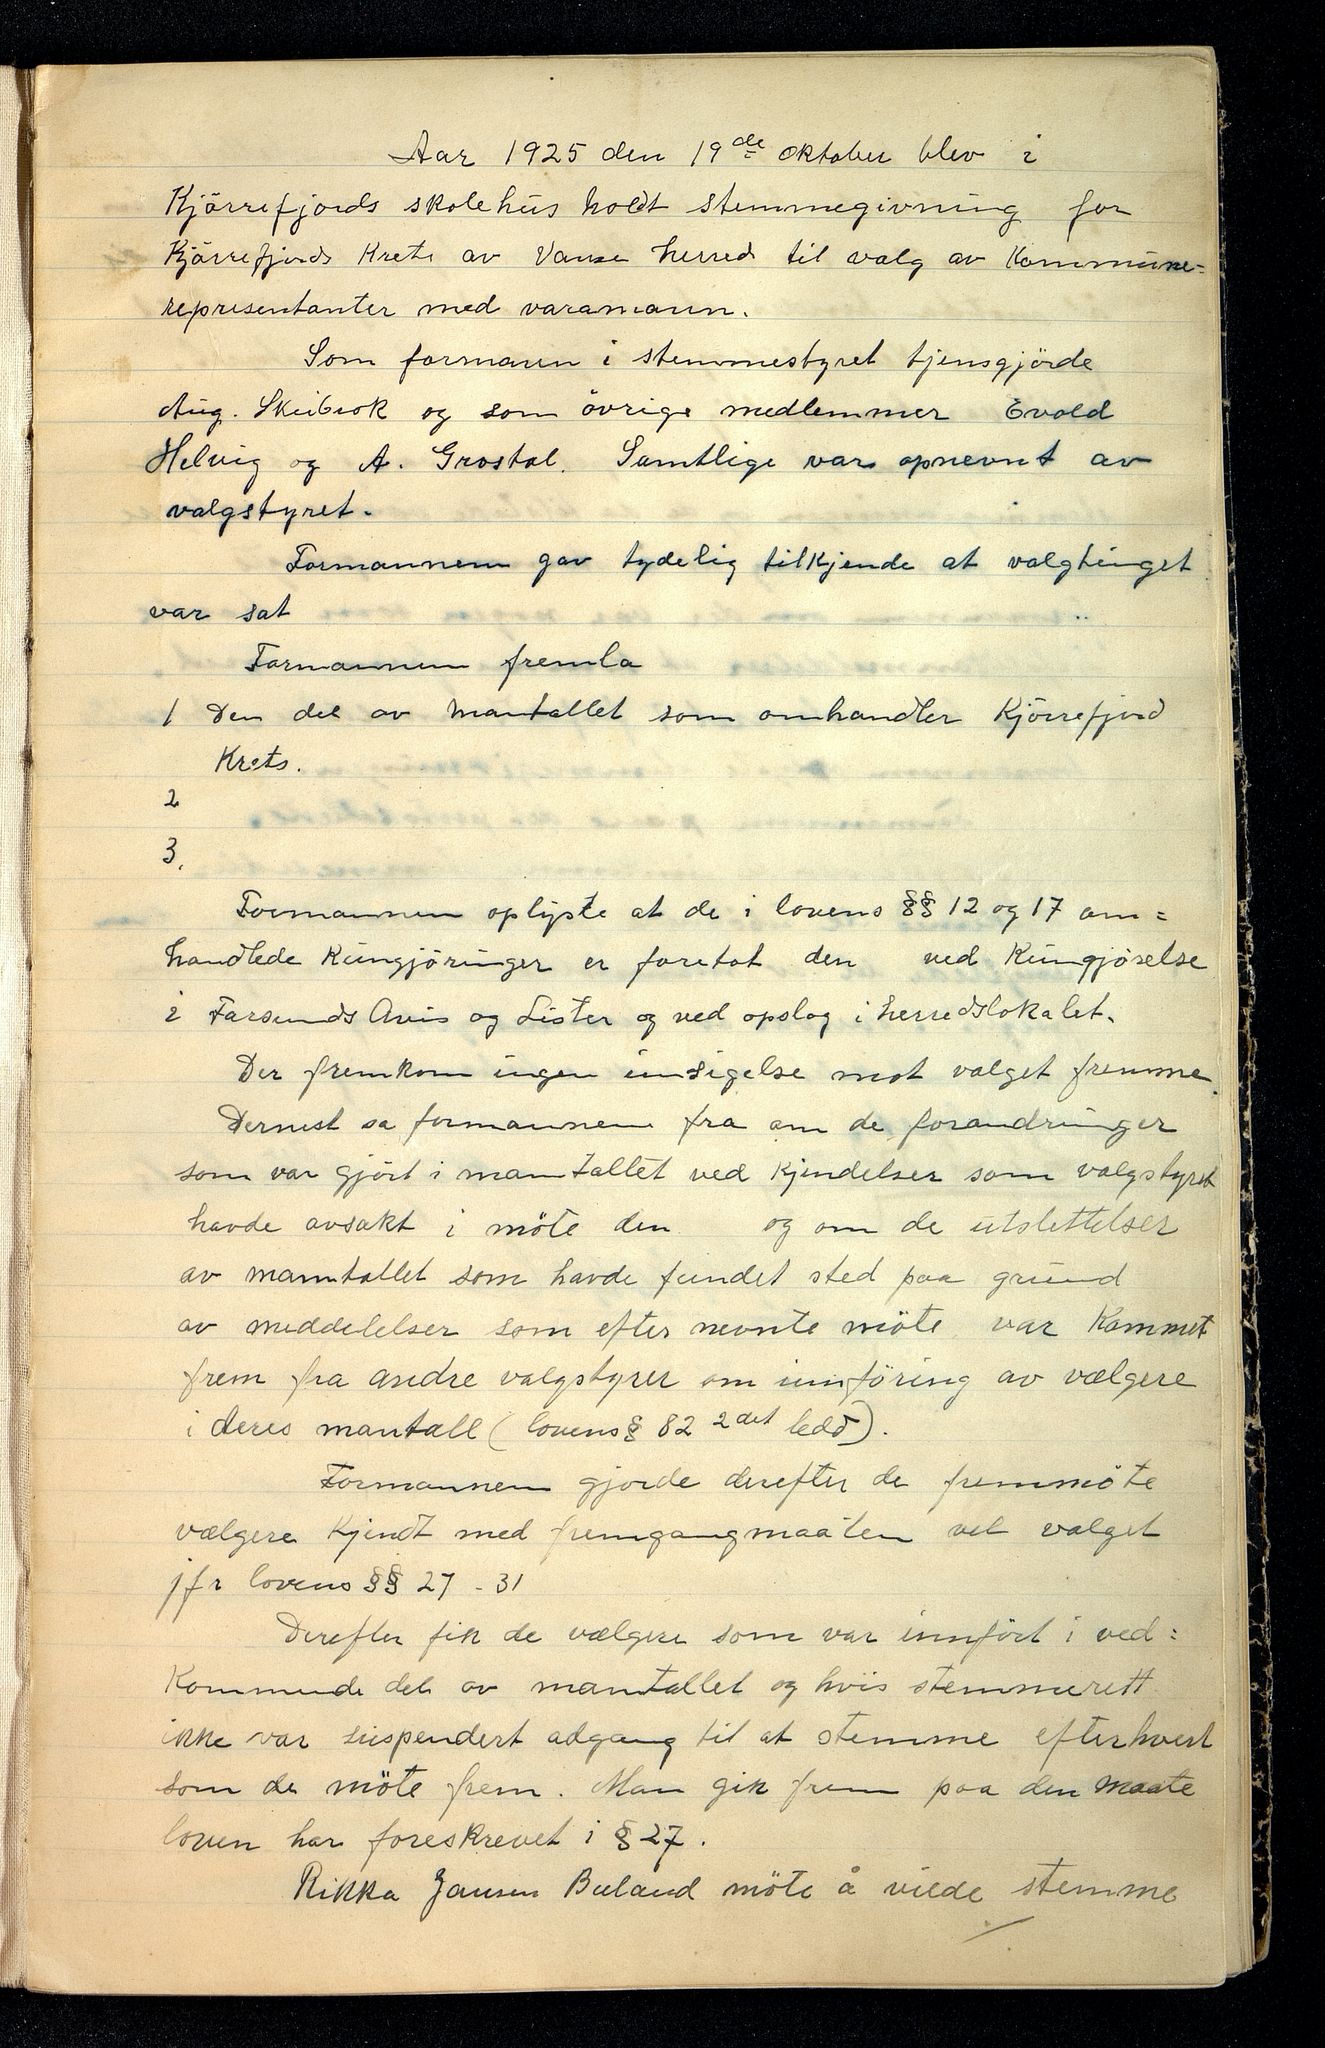 Aar 1925 den 19de oktober blev i
Kjörrefjords skolehus holdt stemmegivning for
Kjörrefjords Krets av Vanse herred til valg av Kommune=
representanter med varamann.
Som formann i stemmestyret tjensgjörde
Aug. Skeibrok og som övrige medlemmer Evald
Helvig og A. Grostøl. Samtlige var opnevnt av
valgstyret.
Formannen gav tydelig tilkjende at valgtinget
var sat
Formannen fremla
1 Den del av mantallet som omhandler Kjörrefjord
Krets.
2
3.
Formannen oplyste at de i lovens §§ 12 og 17 om=
handlede Kungjöringer er foretat den ved Kungjörelse
i Farsunds Avis og Lister og ved opslag i herredslokalet.
Der fremkom ingen innsigelse mot valget fremme.
Dernest sa formannen fra om de forandringer
som var gjört i manntallet ved Kjendelser som valgstyret
havde avsakt i möte den og om de utslettelser
av manntallet som havde fundet sted paa grund
av meddelelser som efter nevnte möte var Kommet
frem fra andre valgstyrer om innföring av vælgere
i deres mantall (lovens § 82 2det ledd).
Formannen gjorde derefter de fremmöte
vælgere Kjendt med fremgangmaaten vet valget
jfr lovens §§ 27 - 31
Derefter fik de vælgere som var innfört i ved=
Kommende del av manntallet og hvis stemmerett
ikke var suspendert adgang til at stemme efterhvert
som de möte frem. Man gik frem paa den maate
loven har foreskrevet i § 27.
Rikka Jansen Buland möte å vilde stemme